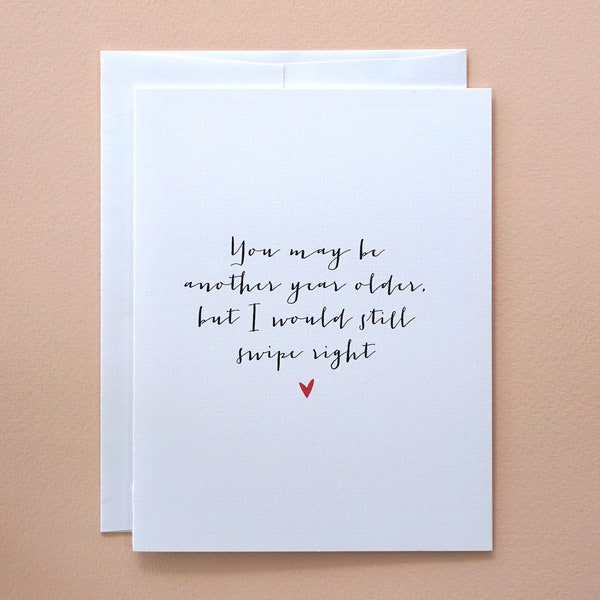 You may be
another year older,
but I would still
swipe right